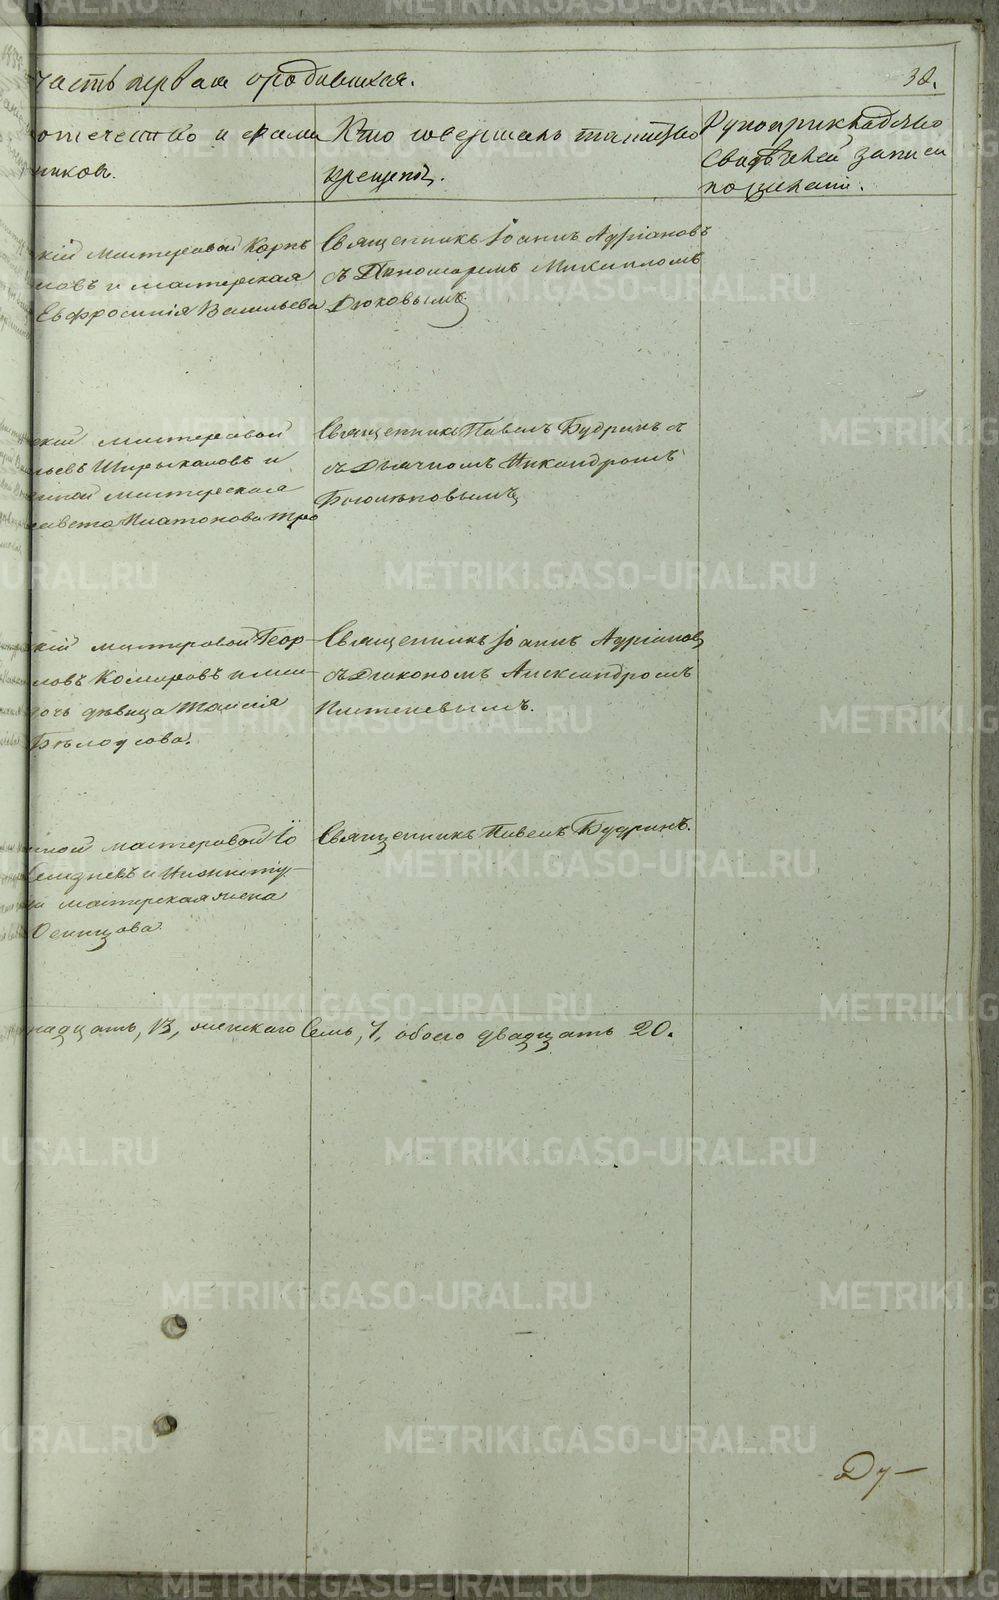 часть первая о родившихся. 32.
отчество и фами
никовъ.
Кто совершалъ таинство
крещенія.
Рукоприкладство
свидѣтелей записи
по желанію.
кій мастеровой Карпъ
новъ и мастерская
Евфросинія Васильева
Священникъ Іоаннъ Адріановъ
съ Пономаремъ Михаиломъ
Дюковымъ
скій мастеровой
льевъ Ширыкаловъ и
нной мастерская
савета Платонова
Священникъ Павелъ Будринъ
съ Дьячкомъ Никандромъ
кій мастеровой Геор-
ловъ Комаровъ и
дочь дѣвица Таисія
Бѣлоусова.
Священникъ Іоаннъ Адріановъ
съ Діакономъ Александромъ
нной мастеровой Іо
Селезневъ и Нижнету-
й мастерская жена
Осинцова
Священникъ Павелъ Будринъ.
надцать, 13, женскаго Семь, 7, обоего двадцать 20.
Ду-
METRIKI.GASO-URAL.RU